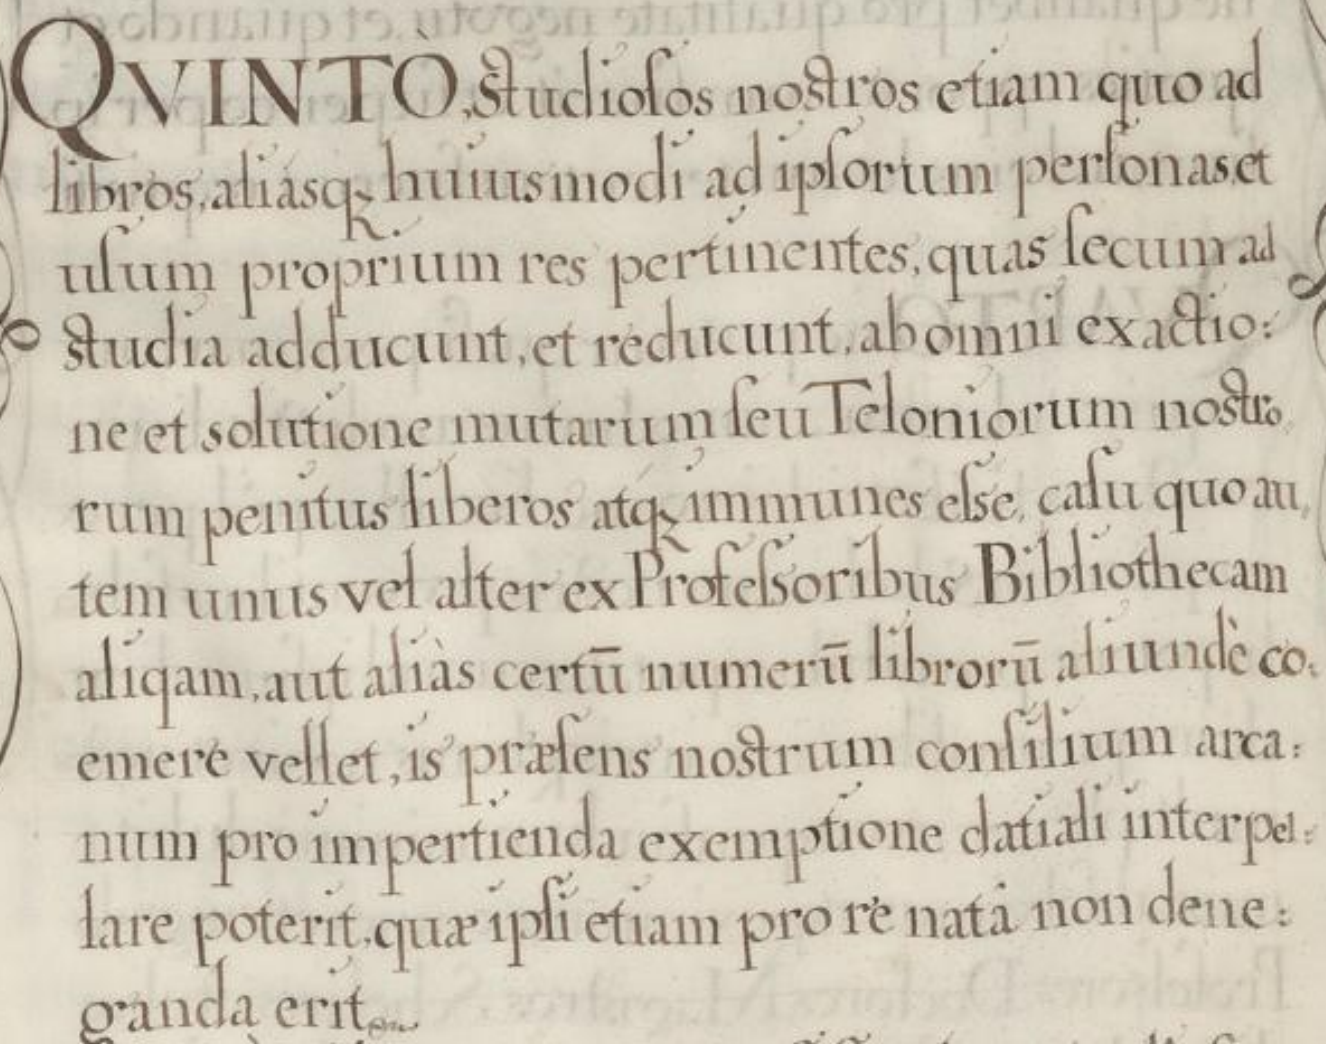 QVINTÒ, studiosos nostros etiam quo ad
libros, aliasq; huiusmodi ad ipsorum personas, et
usum proprium res pertinentes, quas secum ad
studia adducunt, et reducunt, ab omni exactio:
ne et solutione mutarum seu Teloniorum nostro,
rum penitus liberos atq; immunes esse, casu quo au,
tem unus vel alter ex Professoribus Bibliothecam
aliqam, aut aliàs certū numerū librorū aliundè co,
emere vellet, is præsens nostrum consilium arca:
num pro impertienda exemptione datiali interpel:
lare poterit, quæ ipsi etiam pro rè natâ non dene:
ganda erit